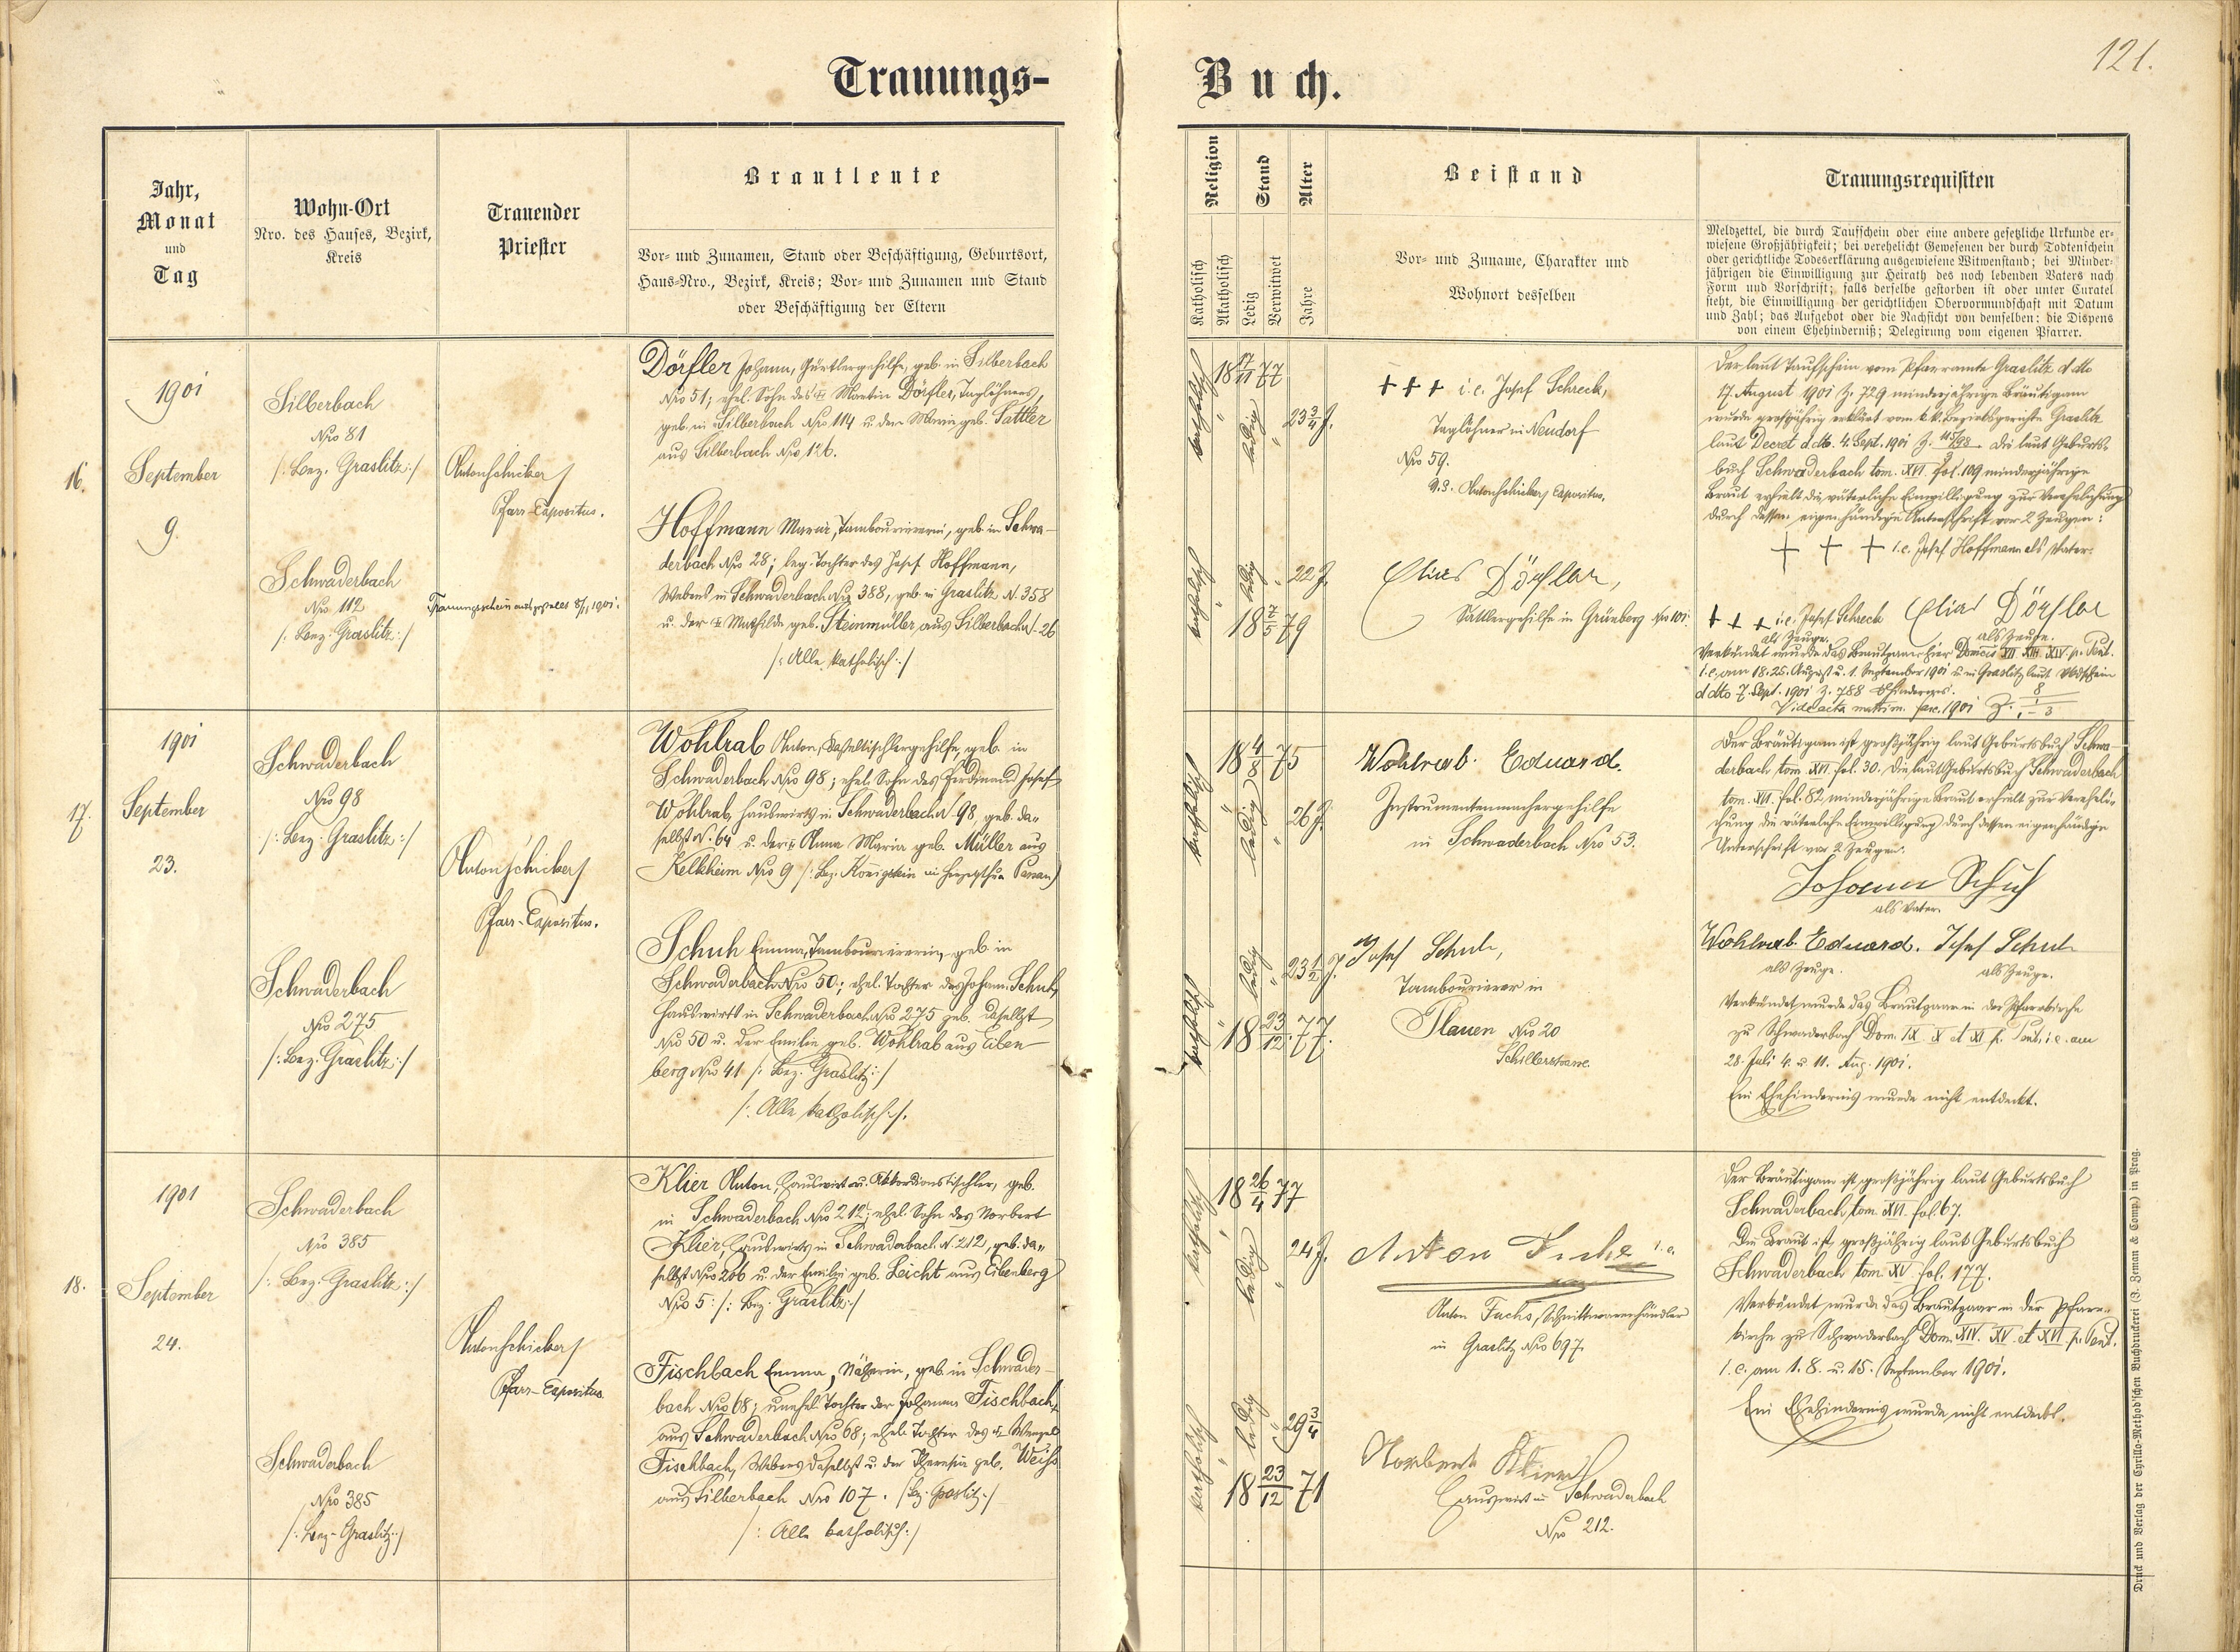 121.
Trauungs-
Buch.
Jahr,
Monat
und
Tag
Wohn-Ort
Nro. des Hauses, Bezirk,
Kreis
Trauender
Priester
Brautleute
Vor- und Zunamen, Stand oder Beschäftigung, Geburtsort,
Haus-Nro., Bezirk, Kreis; Vor- und Zunamen und Stand
oder Beschäftigung der Eltern
Religion
Katholisch
Akatholisch
Stand
Ledig
Verwitwet
Alter
Jahre
Beistand
Vor- und Zuname, Charakter und
Wohnort desselben
Trauungsrequisiten
Meldzettel, die durch Taufschein oder eine andere gesetzliche Urkunde er-
wiesene Großjährigkeit; bei verehelicht Gewesenen der durch Todtenschein
oder gerichtliche Todeserklärung ausgewiesene Witwenstand; bei Minder-
jährigen die Einwilligung zur Heirath des noch lebenden Vaters nach
Form und Vorschrift; falls derselbe gestorben ist oder unter Curatel
steht, die Einwilligung der gerichtlichen Obervormundschaft mit Datum
und Zahl; das Aufgebot oder die Nachsicht von demselben; die Dispens
von einem Ehehinderniß; Delegirung vom eigenen Pfarrer.
16.
1901
September
9.
Silberbach
Nro 81
/: Bez. Graslitz :/
Schwaderbach
Nro 112
/: Bez. Graslitz :/
Anton Schickerj
Pfarr-Expositus.
Dörfler Johann, Gürtlergehilfe, geb. in Silberbach
Nro 51; ehel. Sohn des Martin Dörfler, Taglöhners,
geb. in Silberbach Nro 114 u. der Maria geb. Sattler
aus Silberbach Nro 126.
Hoffmann Maria, Tambouriererin, geb. in Schwa-
derbach Nro 28; leg. Tochter des Josef Hoffmann,
Webers in Schwaderbach Nro 388, geb. in Graslitz N. 358
u. der Mathilde geb. Steinmüller, aus Silberbach N. 26
/: Alle katholisch :/
katholisch
18 17/11 77
ledig
23 3/4 J.
katholisch
ledig
22 J.
18 7/5 79
+ + + i. e. Josef Schreck,
Taglöhner in Neudorf
Nro 59.
Anton Schickerj Expositus.
Elias Dörfler,
Sattlergehilfe in Grünberg Nro 101.
Der laut Taufschein vom Pfarramte Graslitz ddto
17. August 1901 Z. 729 minderjährige Bräutigam
wurde großjährig erklärt vom k. k. Bezirksgerichte Graslitz
laut Decret ddto. 4. Sept. 1901 Die laut Geburts-
buch Schwaderbach tom. XVI. fol. 109 minderjährige
Braut erhielt die väterliche Einwilligung zur Verehelichung
durch dessen eigenhändige Unterschrift vor 2 Zeugen:
+ + + i. e. Josef Hoffmann als Vater.
+ + + i. e. Josef Schreck Elias Dörfler
als Zeuge. als Zeuge.
Verkündet wurde das Brautpaar hier XII XIII XIV p. Pent.
i. e. am 18. 25. August u. 1. September 1901 u. in Graslitz laut
ddto 7. Sept. 1901 Z. 788
Vide acta matrim. fasc. 1901
17.
1901
September
23.
Schwaderbach
Nro 98
/: Bez. Graslitz :/
Schwaderbach
Nro 275
/: Bez. Graslitz :/
Anton Schickerj
Pfarr-Expositus.
Wohlrab Anton, geb. in
Schwaderbach Nro 98; ehel. Sohn des Ferdinand Josef
Wohlrab, Hauswirts in Schwaderbach N. 98, geb. da-
selbst N. 64 u. der Anna Maria geb. Müller aus
Kelkheim Nro 9 /: Bez. Königstein
Schuh Emma, Tambouriererin, geb. in
Schwaderbach Nro 50; ehel. Tochter des Johann Schuh,
Hauswirts in Schwaderbach Nro 275 geb. daselbst
Nro 50 u. der Emilie geb. Wohlrab aus Eiben-
berg Nro 41 /: Bez. Graslitz :/
/: Alle katholisch :/.
katholisch
18 4/8 75
ledig
26 J.
katholisch
ledig
23 1/2 J.
18 23/12 77.
Wohlrab. Eduard.
Instrumentenmachergehilfe
in Schwaderbach Nro 53.
Josef Schuh,
Tambourierer in
Plauen Nro 20
Schillerstrasse.
Der Bräutigam ist großjährig laut Geburtsbuch Schwa-
derbach tom. XVI. fol. 30. Die laut Geburtsbuch Schwaderbach
tom. XVI. fol. 82 minderjährige Braut erhielt zur Vereheli-
chung die väterliche Einwilligung durch dessen eigenhändige
Unterschrift vor 2 Zeugen:
Johann Schuh
als Vater.
Wohlrab. Eduard. Josef Schuh
als Zeuge. als Zeuge.
Verkündet wurde das Brautpaar in der Pfarrkirche
zu Schwaderbach Dom. IX X et XI p. Pent. i. e. am
28. Juli 4. u. 11. Aug. 1901.
Ein Ehehindernis wurde nicht entdeckt.
18.
1901
September
24.
Schwaderbach
Nro 385
/: Bez. Graslitz :/
Schwaderbach
Nro 385
/: Bez. Graslitz :/
Anton Schickerj
Pfarr-Expositus
Klier Anton, Hauswirt u. Akkordionstischler, geb.
in Schwaderbach Nro 212; ehel. Sohn des Norbert
Klier, Hauswirts in Schwaderbach N. 212, geb. da-
selbst Nro 206 u. der Emilie geb. Leicht aus Eibenberg
Nro 5 /: Bez. Graslitz :/
Fischbach Emma, Näherin, geb. in Schwader-
bach Nro 68; unehel. Tochter der Johanna Fischbach,
aus Schwaderbach Nro 68; ehel. Tochter des Wenzel
Fischbach, Webers daselbst u. der Theresia geb. Weiss
aus Silberbach Nro 107. /: Bez. Graslitz :/
/: Alle katholisch :/
katholisch
18 26/4 77
ledig
24 J.
katholisch
ledig
29 3/4
18 23/12 71
Anton Fuchs i. e.
Anton Fuchs, Schnittwarenhändler
in Graslitz Nro 697.
Norbert Klier
Hauswirt in Schwaderbach
Nro 212.
Der Bräutigam ist großjährig laut Geburtsbuch
Schwaderbach tom. XVI. fol. 67.
Die Braut ist großjährig laut Geburtsbuch
Schwaderbach tom. XV. fol. 177.
Verkündet wurde das Brautpaar in der Pfarr-
kirche zu Schwaderbach Dom. XIV. XV. et XVI p. Pent.
i. e. am 1. 8. u. 15. September 1901.
Ein Ehehindernis wurde nicht entdeckt.
Druck und Verlag der Cyrillo-Method'schen Buchdruckerei (J. Zeman & Comp.) in Prag.